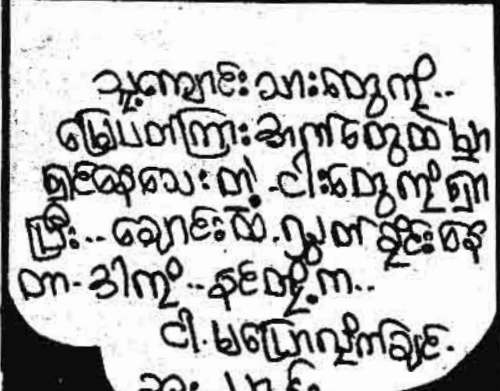 သူ့ကျောင်းသားတွေကို..
မြေပတကြားအက်တွေထဲမှာ
ရှင်နေသေးတဲ့.ငါးတွေကိုရှာ
ပြီး..ချောင်းထဲ.လွှတ်ခိုင်းနေ
တာ-ဒါကို..နင်တို့က..
ငါ.မပြောလိုက်ချင်.